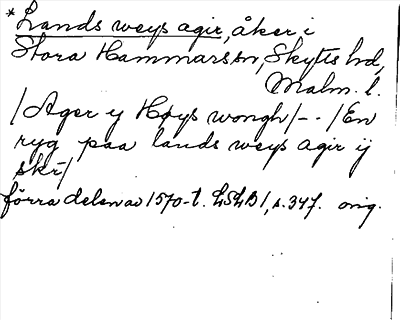 *Lands weys agir, åker i
Stora Hammars sn, Skytts hd,
Malm. l.
/Ager y Høys wongh/-.-/En
ryg paa lands weys agir ij
skr̄/
förra delen av 1570-t. LSLB 1, s. 347. orig.